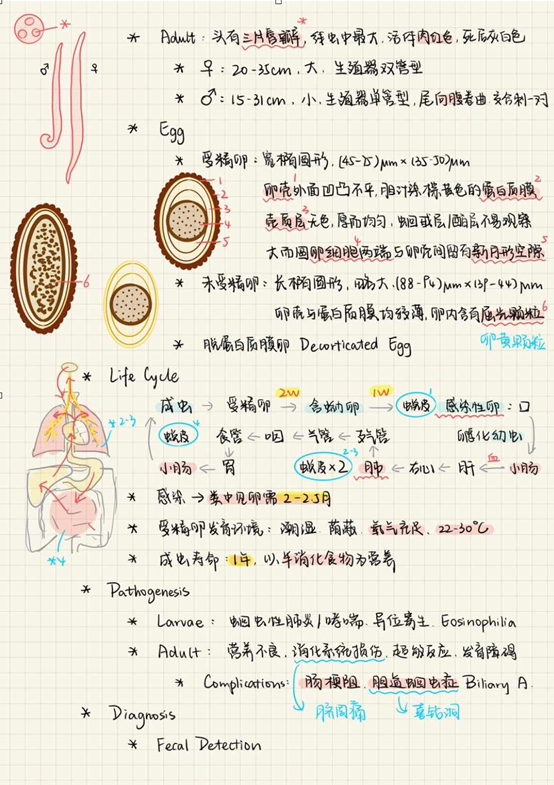 * Adult: 头有三片唇瓣*, 线虫中最大, 活体肉红色, 死后灰白色
♂ ♀
* ♀: 20-35cm, 大, 生殖器双管型
* ♂: 15-31cm, 小, 生殖器单管型, 尾向腹卷曲, 交合刺一对
* Egg
* 受精卵: 宽椭圆形, (45-75)μm×(35-50)μm
卵壳¹外面凹凸不平, 胆汁染棕黄色的蛋白质膜²
壳质层³无色, 厚而均匀, 蛔甙层/酯层不易观察
大而圆卵细胞⁴, 两端与卵壳间留有新月形空隙⁵
1
2
3
4
5
6
* 未受精卵: 长椭圆形, 略大, (88-94)μm×(39-44)μm
卵壳与蛋白质膜均较薄, 卵内含有屈光颗粒⁶
卵黄颗粒
* 脱蛋白质膜卵 Decorticated Egg
* Life Cycle
成虫 → 受精卵 2W→ 含幼卵 1W→ 蜕皮¹ 感染性卵: 口
蜕皮⁴ 食管 ← 咽 ← 气管 ← 支气管 孵化幼虫
小肠 ← 胃 蜕皮×2 ²⁻³ 肺 ← 右心 ← 肝 ←血 小肠
* 2-3
*4
* 感染 → 粪中见卵需 2-2.5月
* 受精卵发育环境: 潮湿、荫蔽、氧气充足、22-30℃
* 成虫寿命: 1年, 以半消化食物为营养
* Pathogenesis
* Larvae: 蛔虫性肺炎/哮喘、异位寄生、Eosinophilia
* Adult: 营养不良、消化系统损伤、超敏反应、发育障碍
* Complications: 肠梗阻、胆道蛔虫症 Biliary A.
脐周痛 钻凿
* Diagnosis
* Fecal Detection